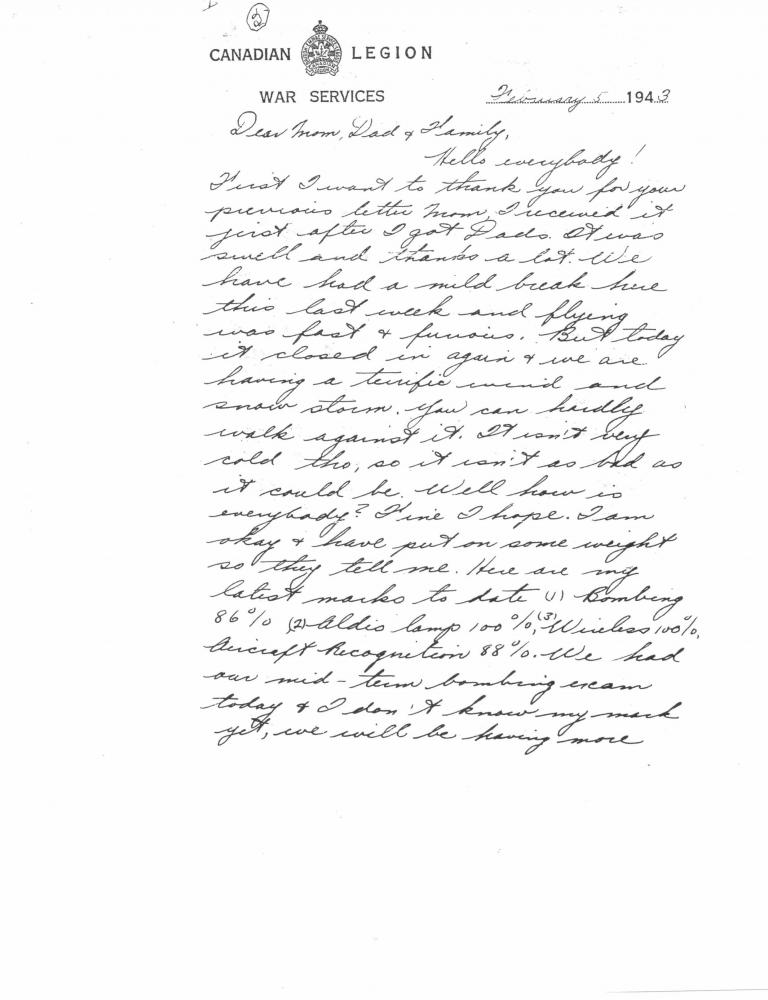 2
CANADIAN LEGION
WAR SERVICES
February 5 1943
Dear Mom, Dad & Family,
Hello everybody!
First I want to thank you for your
previous letter Mom, I received it
just after I got Dads. It was
swell and thanks a lot. We
have had a mild break here
this last week and flying
was fast & furious. But today
it closed in again & we are
having a terrific wind and
snow storm. You can hardly
walk against it. It isn't very
cold tho, so it isn't as bad as
it could be. Well how is
everybody? Fine I hope. I am
okay & have put on some weight
so they tell me. Here are my
latest marks to date (1) Bombing
86% (2) Aldis lamp 100%, (3) Wireless 100%,
Aircraft Recognition 88%. We had
our mid-term bombing exam
today & I don't know my mark
yet, we will be having more